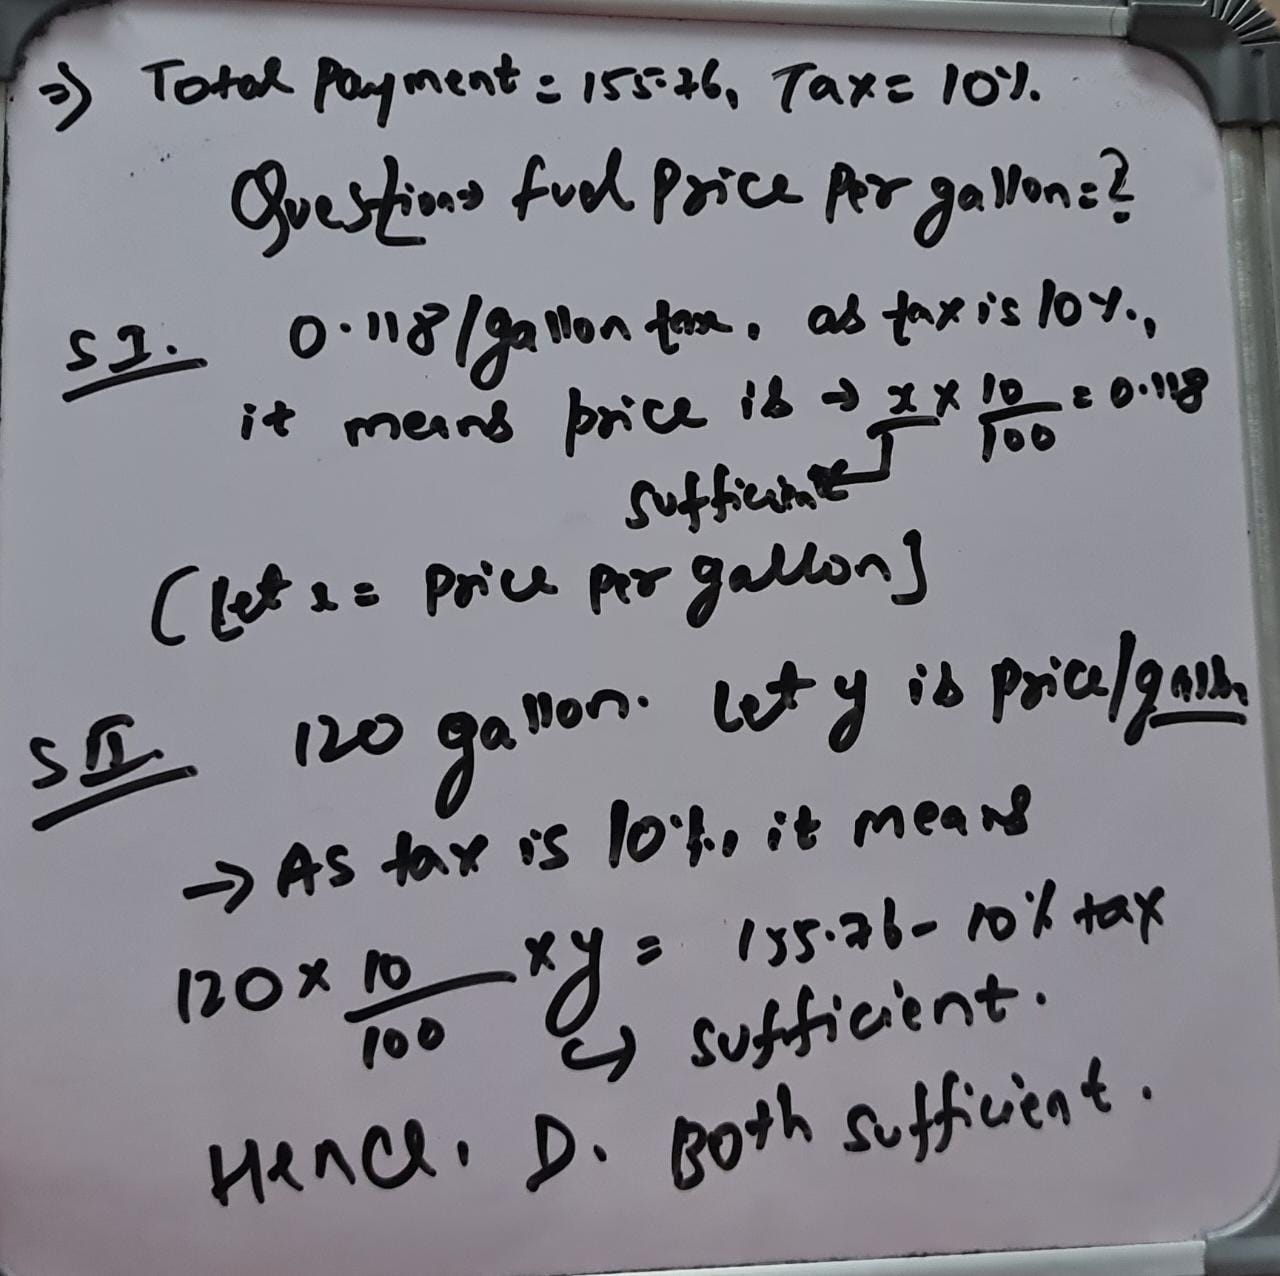 ⇒ Total Payment = 155.76, Tax = 10%.
Question→ fuel Price Per gallon = ?
SI. 0.118/gallon tax, as tax is 10%,
it means price is → x × 10/100 = 0.118
sufficient
(Let x = Price per gallon]
SII. 120 gallon. Let y is price/gallon
→ As tax is 10%, it means
120 × 10/100 × y = 155.76 - 10% tax
↪ sufficient.
Hence, D. Both sufficient.